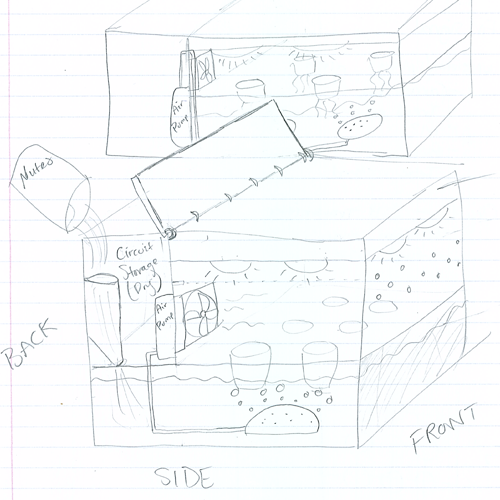 Air
Pump
Nutro
Circuit
Storage
(Dry)
Air
Pump
BACK
FRONT
SIDE